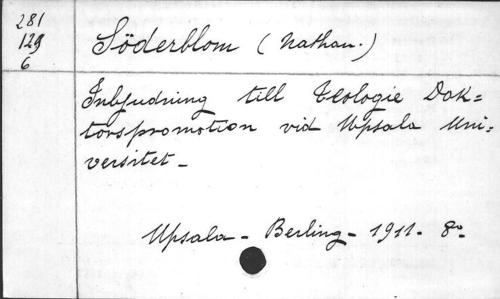 281
129
6
Söderblom (Nathan.)
Inbjudning till Teologie Dok=
torspromotion vid Upsala Uni=
versitet_
Upsala - Berling - 1911 - 8º